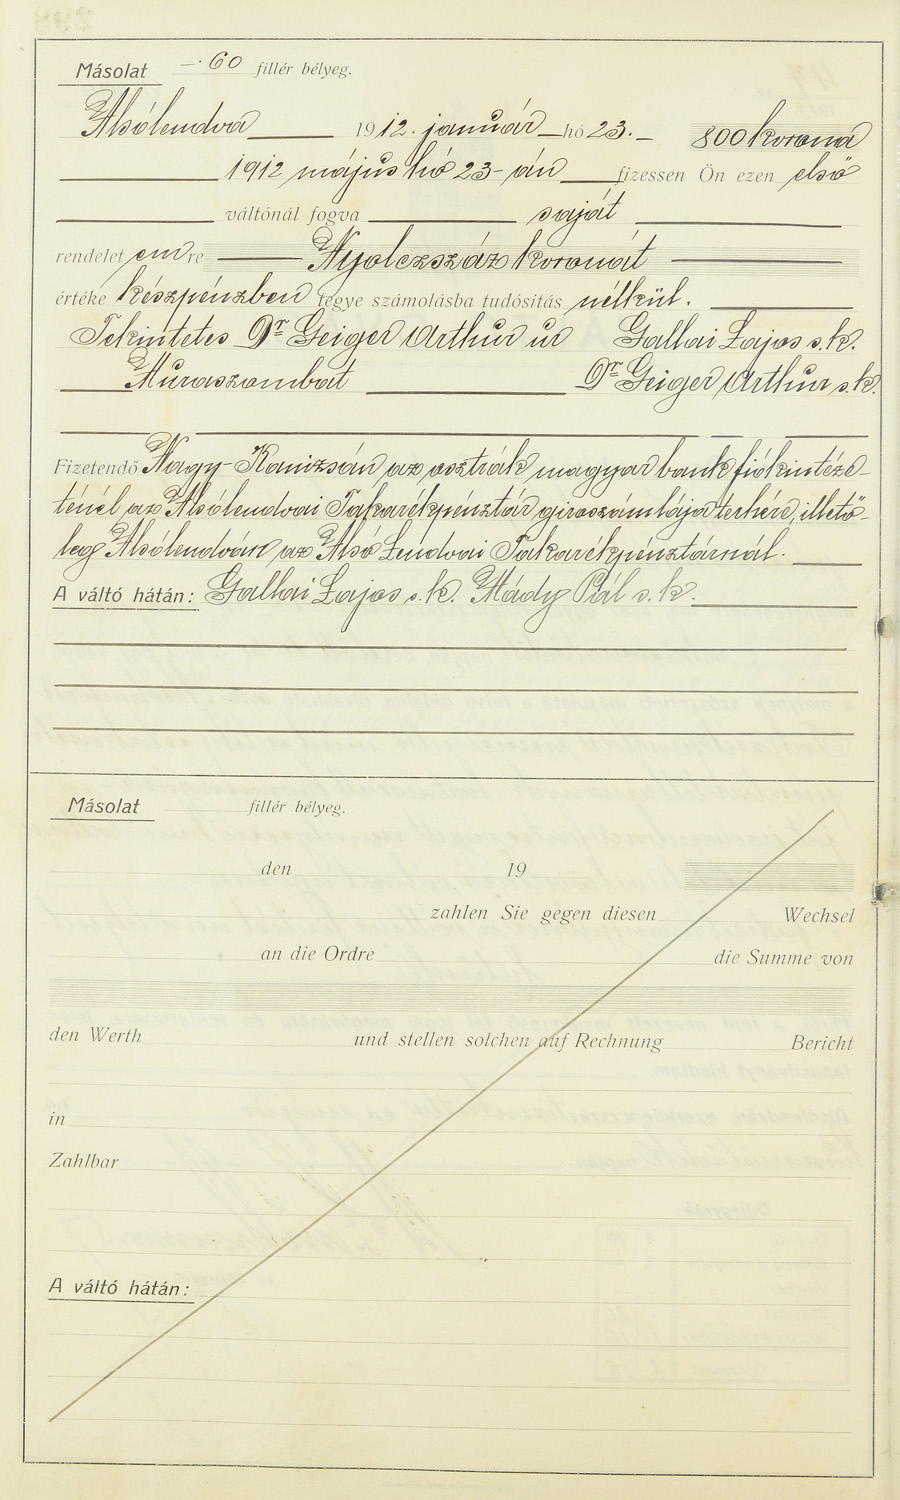 Másolat —·60 fillér bélyeg.
Alsólendva 1912. január hó 23. 800 korona
1912 május hó 23-án fizessen Ön ezen első
váltónál fogva saját
rendeletemre Nyolczszáz koronát
értéke készpénzben tegye számolásba tudósitás nélkül.
Tekintetes Dr Geiger Arthur úr Gallai Lajos s.k.
Muraszombat Dr Geiger Arthur s.k.
Fizetendő Nagy-Kanizsán az osztrák magyar bank fiókintéze-
ténél az Alsólendvai Takarékpénztár giroszámlája terhére, illető-
leg Alsólendván az Alsó Lendvai Takarékpénztárnál.
A váltó hátán: Gallai Lajos s.k. Mády Pál s.k.
Másolat fillér bélyeg.
den 19
zahlen Sie gegen diesen Wechsel
an die Ordre die Summe von
den Werth und stellen solchen auf Rechnung Bericht
in
Zahlbar
A váltó hátán: